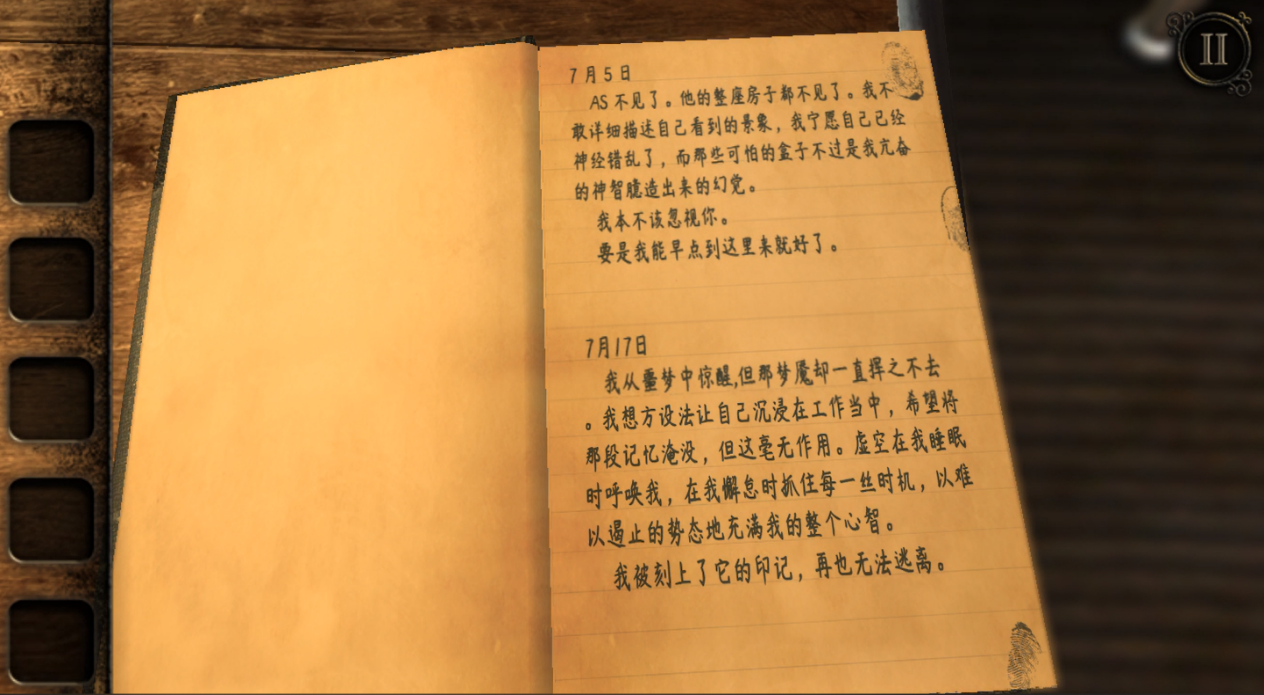 7月5日
AS不见了。他的整座房子都不见了。我不
敢详细描述自己看到的景象，我宁愿自己已经
神经错乱了，而那些可怕的盒子不过是我亢奋
的神智臆造出来的幻觉。
我本不该忽视你。
要是我能早点到这里来就好了。
7月17日
我从噩梦中惊醒,但那梦魇却一直挥之不去
。我想方设法让自己沉浸在工作当中，希望将
那段记忆淹没，但这毫无作用。虚空在我睡眠
时呼唤我，在我懈怠时抓住每一丝时机，以难
以遏止的势态地充满我的整个心智。
我被刻上了它的印记，再也无法逃离。
II